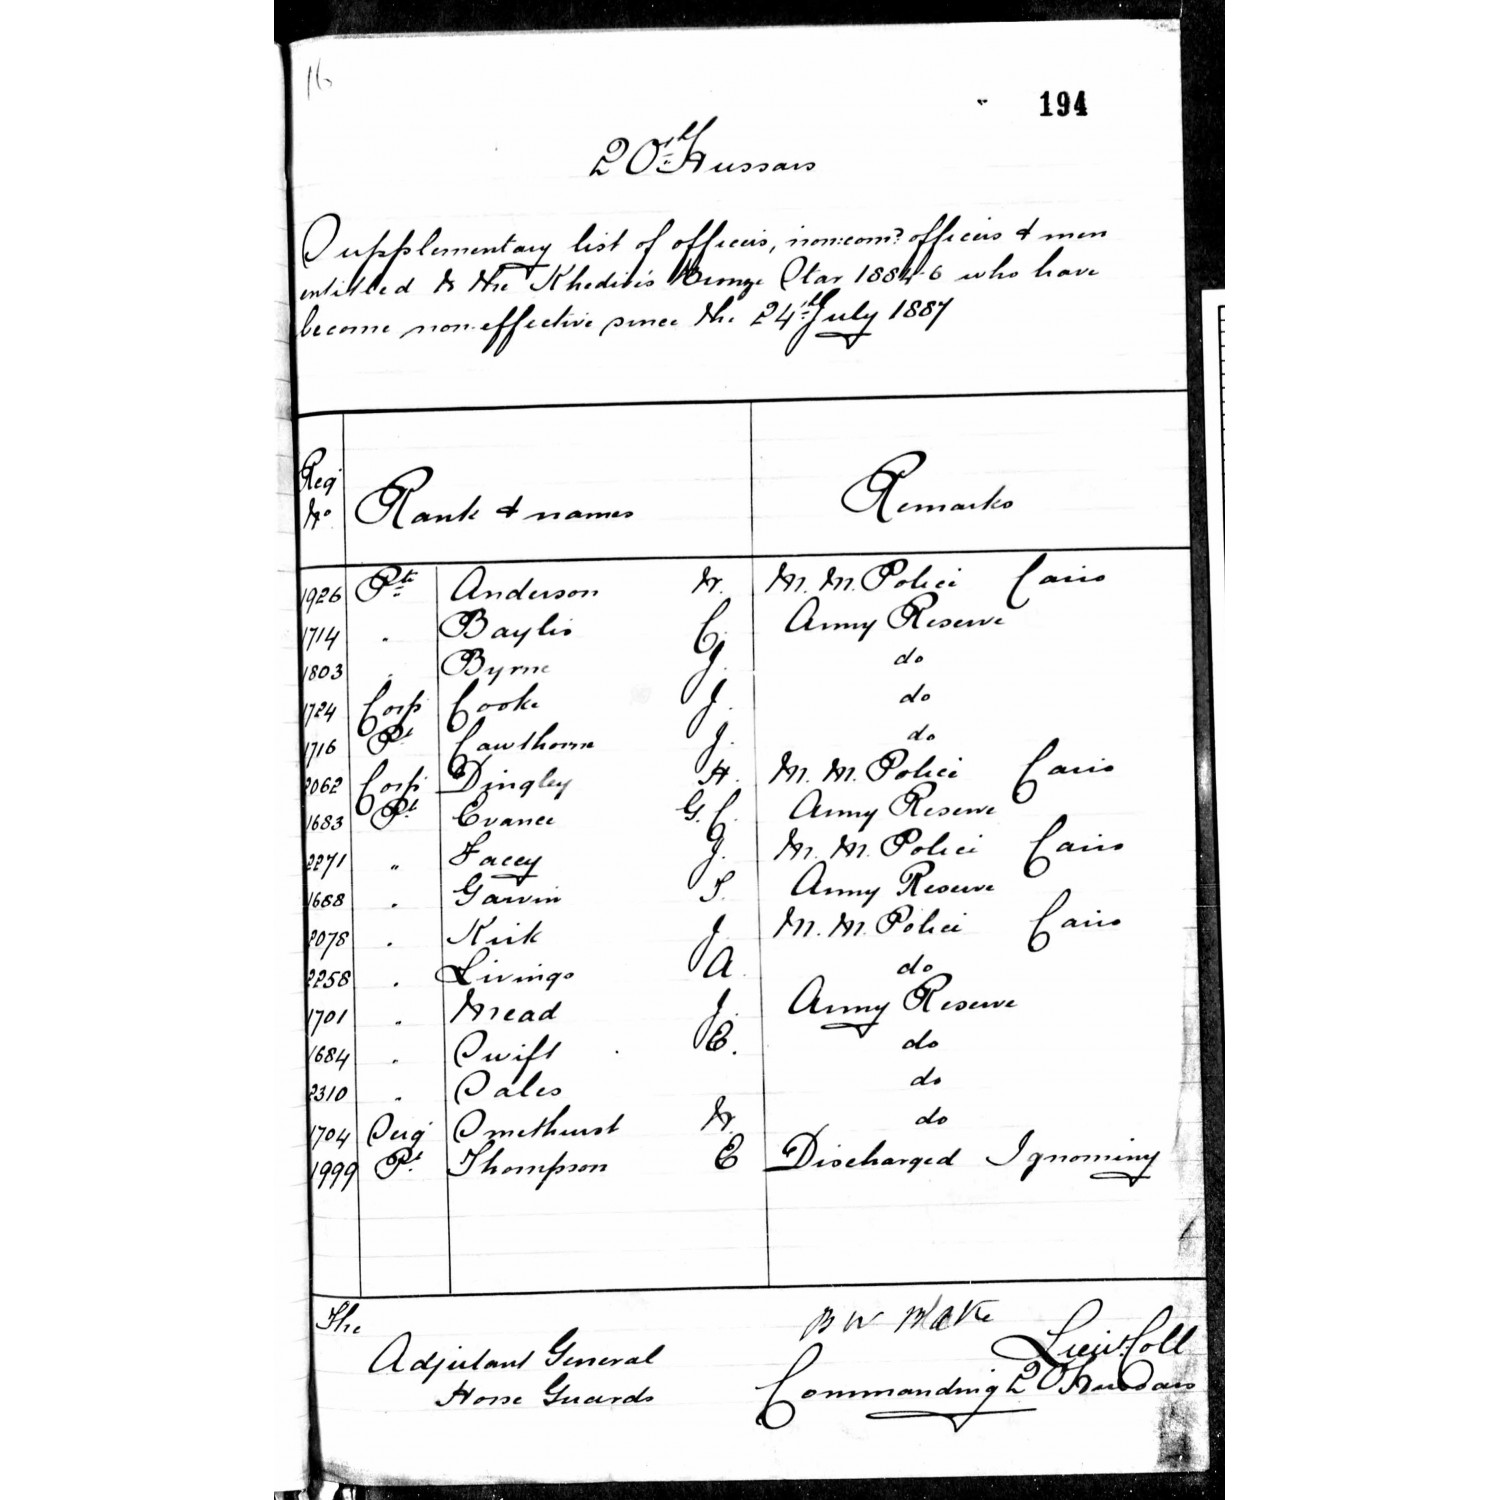 16
194
20th Hussars
Supplementary list of officers, non:comd officers & men
entitled to the Khedive's Bronze Star 1884-6 who have
become non-effective since the 24th July 1887
Reg No Rank & names Remarks
1926 Pte Anderson W. M. M. Police Cairo
1714 " Baylis C. Army Reserve
1803 " Byrne J. do
1724 Corp Cooke J. do
1716 Pt Cawthorne J. do
2062 Corp Dingley H. M. M. Police Cairo
1683 Pt Evance G. C. Army Reserve
2271 " Facey J. M. M. Police Cairo
1688 " Garvin S. Army Reserve
2078 " Kirk J. M. M. Police Cairo
2258 " Livings A. do
1701 " Mead J. Army Reserve
1684 " Swift E. do
2310 " Sales do
1704 Serg Smethurst W. do
1999 Pt Thompson E Discharged Ignominy
The
Adjutant General
Horse Guards
B W Blake
Lieut Coll
Commanding 20 Hussars